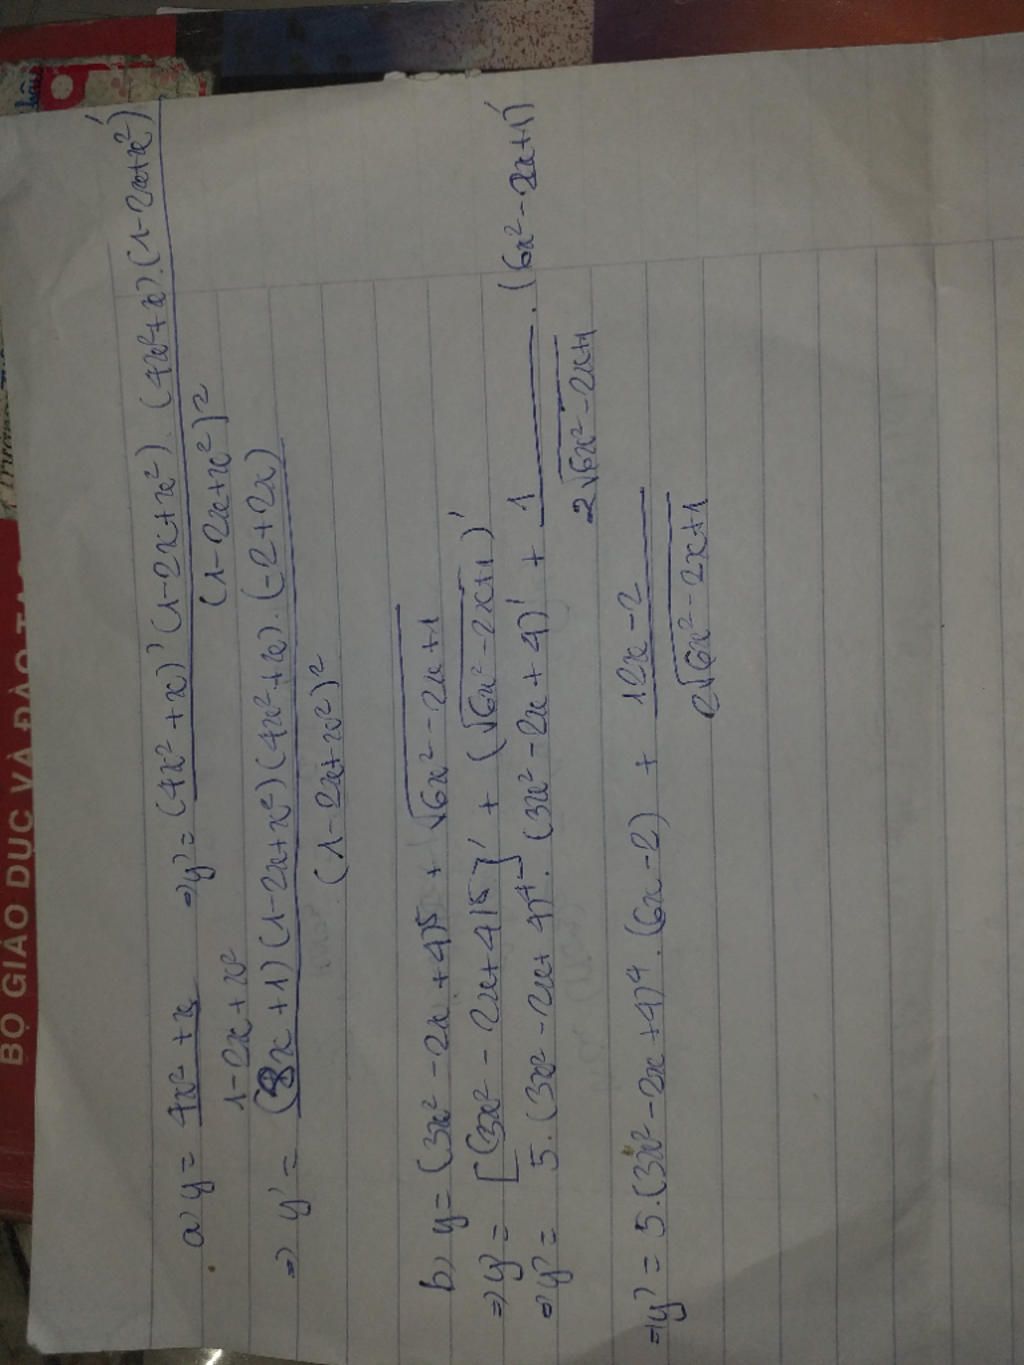 BỘ GIÁO DỤC VÀ ĐÀO TẠO
a) y = (4x² + x)/(1 - 2x + x²) ⇒ y' = ((4x² + x)' (1 - 2x + x²). (4x² + x).(1 - 2x + x²)')/((1 - 2x + x²)²)
⇒ y' = ((8x + 1)(1 - 2x + x²)(4x² + x).(-2 + 2x))/((1 - 2x + x²)²)
b) y = (3x² - 2x + 4)⁵ + √(6x² - 2x + 1)
⇒ y' = [(3x² - 2x + 4)⁵]' + (√(6x² - 2x + 1))'
⇒ y' = 5.(3x² - 2x + 4)⁴.(3x² - 2x + 4)' + 1/(2√(6x² - 2x + 1)) . (6x² - 2x + 1)'
⇒ y' = 5.(3x² - 2x + 4)⁴.(6x - 2) + (12x - 2)/(2√(6x² - 2x + 1))